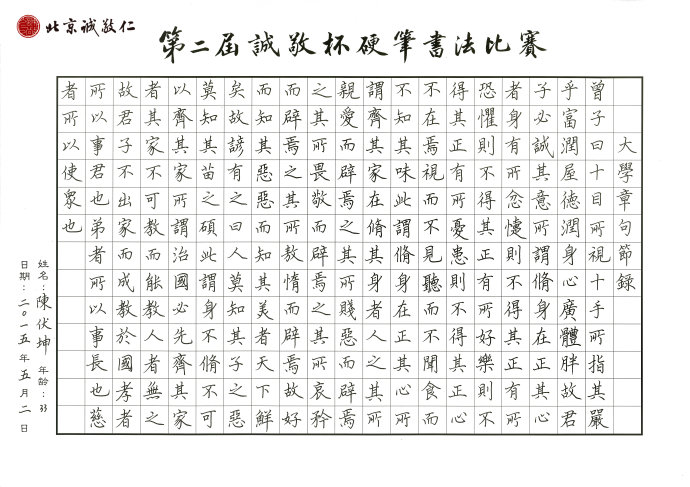 北京誠敬仁
第二屆誠敬杯硬筆書法比賽
大學章句節録
曾子曰十目所視十手所指其嚴
乎富潤屋德潤身心廣體胖故君
子必誠其意所謂脩身在正其心
者身有所忿懥則不得其正有所
恐懼則不得其正有所好樂則不
得其正有所憂患則不得其正心
不在焉視而不見聽而不聞食而
不知其味此謂脩身在正其心所
謂齊其家在脩其身者人之其所
親愛而辟焉之其所賤惡而辟焉
之其所畏敬而辟焉之其所哀矜
而辟焉之其所敖惰而辟焉故好
而知其惡惡而知其美者天下鮮
矣故諺有之曰人莫知其子之惡
莫知其苗之碩此謂身不脩不可
以齊其家所謂治國必先齊其家
者其家不可教而能教人者無之
故君子不出家而成教於國孝者
所以事君也弟者所以事長也慈
者所以使衆也
姓名：陳伏坤 年齡：33
日期：二〇一五年五月二日